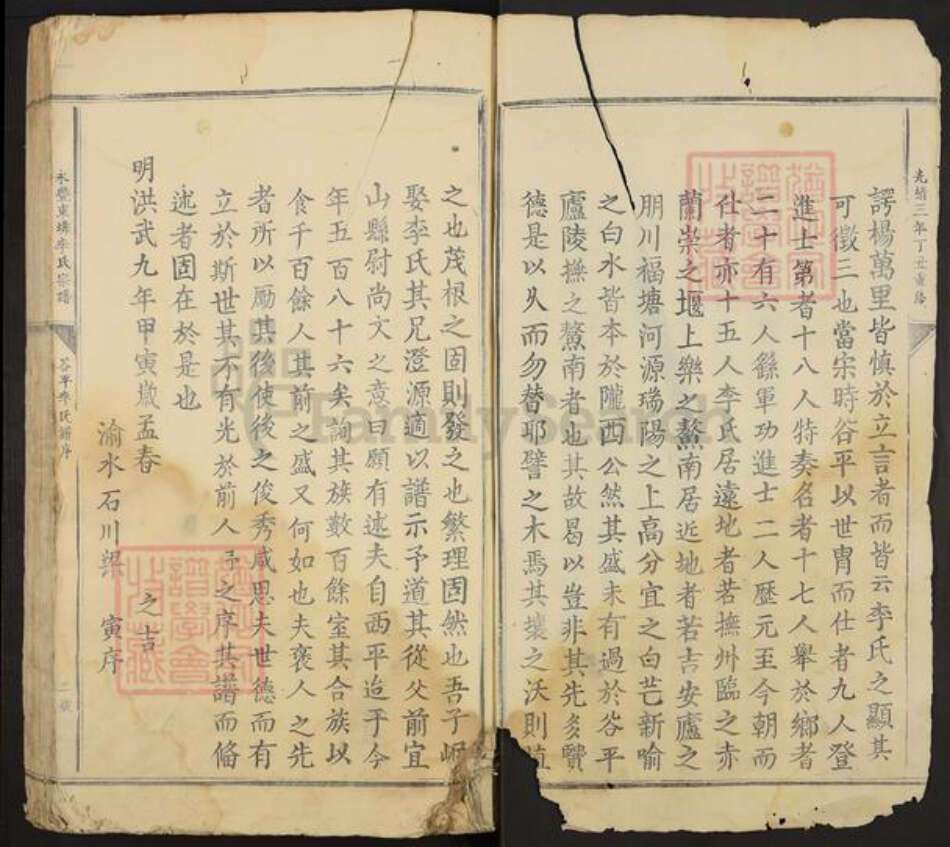 光緒三年丁丑重修
諤楊萬里皆慎於立言者而皆云李氏之顯其
可徵三也當宋時谷平以世胄而仕者九人登
進士第者十八人特奏名者十七人舉於鄉者
二十有六人繇軍功進士二人歷元至今朝而
仕者亦十五人李氏居遠地者若撫州臨之赤
蘭崇之堰上樂之鰲南居近地者若吉安廬之
朋川福塘河源瑞陽之上高分宜之白芒新喻
之白水皆本於隴西公然其盛未有過於谷平
廬陵撫之鰲南者也其故曷以豈非其先多賢
德是以久而勿替耶譬之木焉其壤之沃則植
之也茂根之固則發之也繁理固然也吾子
娶李氏其兄澄源適以譜示予道其從父前宜
山縣尉尚文之意曰願有述夫自西平迨于今
年五百八十六矣詢其族數百餘室其合族以
食千百餘人其前之盛又何如也夫褒人之先
者所以勵其後使後之俊秀咸思夫世德而有
立於斯世其不有光於前人乎之序其譜而脩
述者固在於是也
明洪武九年甲寅歲孟春 之吉
渝水石川梁 寅序
永豐東塘李氏宗譜
谷平李氏譜序
二
FamilySearch